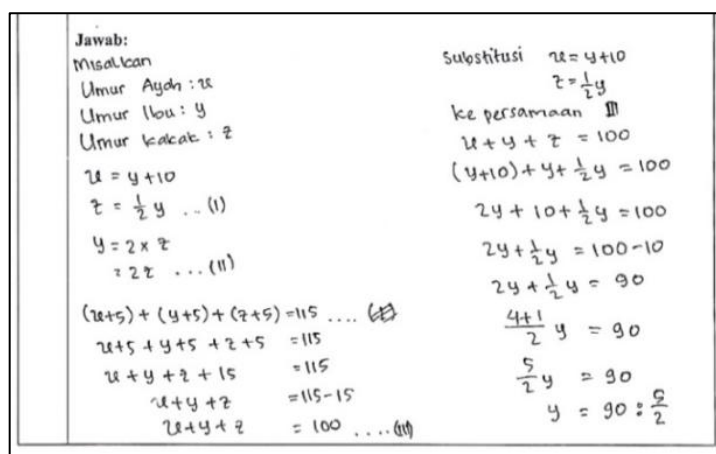 Jawab:
Misalkan
Umur Ayah : x
Umur Ibu : y
Umur kakak : z
x = y+10
z = 1/2 y ... (I)
y = 2 x z
= 2z ... (II)
(x+5) + (y+5) + (z+5) = 115 ....
x+5 + y+5 + z+5 = 115
x + y + z + 15 = 115
x+y+z = 115-15
x+y+z = 100 .... (III)
Substitusi x = y+10
z = 1/2 y
ke persamaan III
x + y + z = 100
(y+10) + y + 1/2 y = 100
2y + 10 + 1/2 y = 100
2y + 1/2 y = 100-10
2y + 1/2 y = 90
4+1/2 y = 90
5/2 y = 90
y = 90 : 5/2